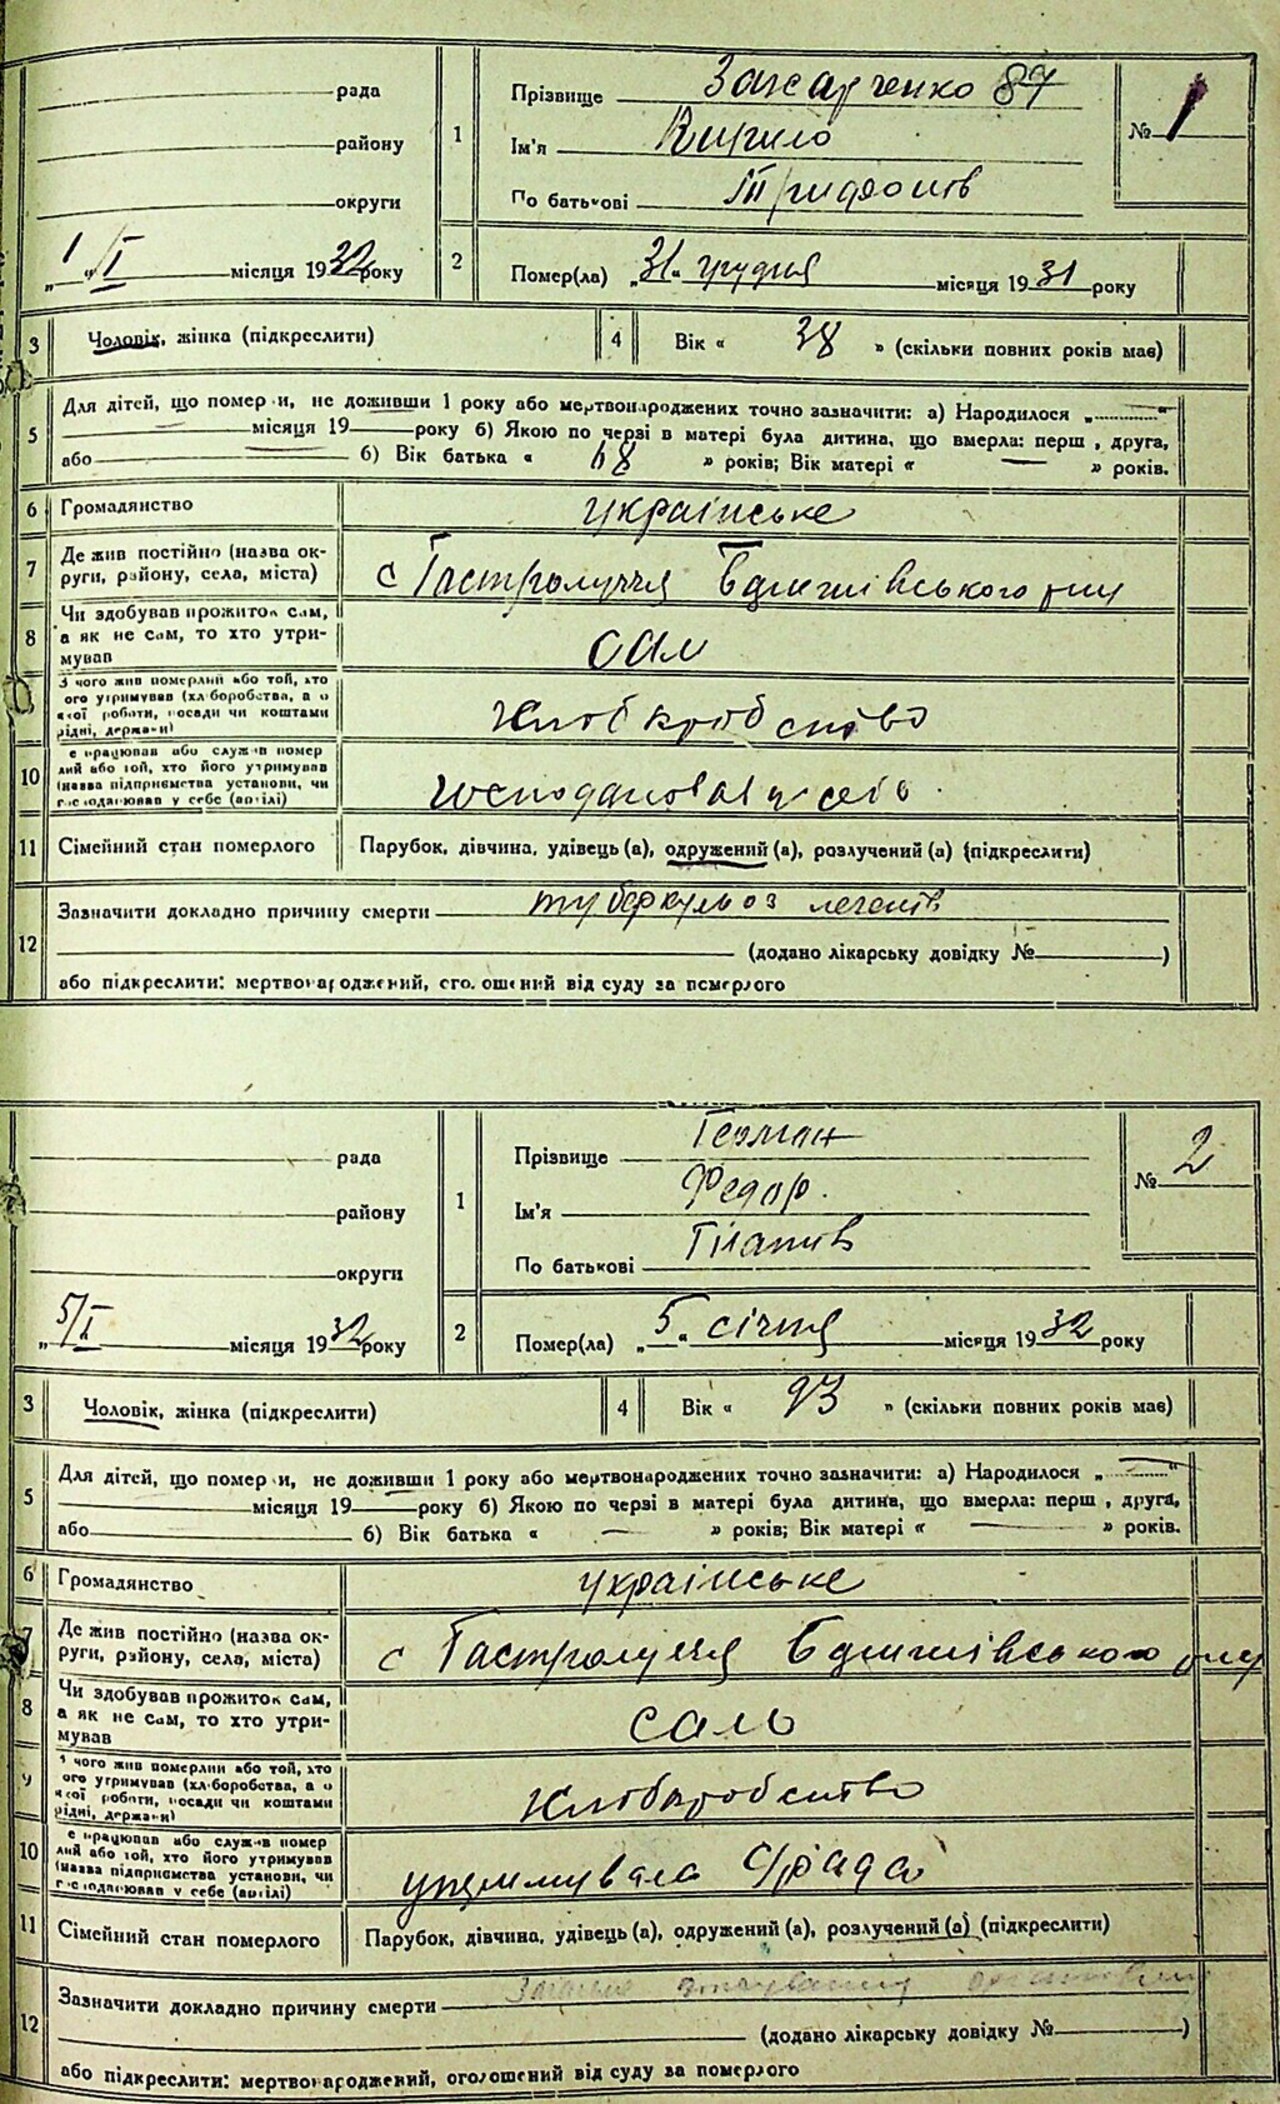 рада
району
округи
1
Прізвище Захарченко 87
Ім'я Кирило
По батькові Трифонів
№ 1
„1“ I місяця 1932 року
2
Помер(ла) „31“ грудня місяця 1931 року
3
Чоловік, жінка (підкреслити)
4
Вік « 38 » (скільки повних років має)
5
Для дітей, що помер и, не доживши 1 року або мертвонароджених точно зазначити: а) Народилося „ “
місяця 19 року б) Якою по черзі в матері була дитина, що вмерла: перш , друга,
або б) Вік батька « 68 » років; Вік матері « — » років.
6
Громадянство
українське
7
Де жив постійно (назва ок-
руги, району, села, міста)
с Гастролуччя Баришівського р-ну
8
Чи здобував прожиток сам,
а як не сам, то хто утри-
мував
сам
З чого жив померлий або той, хто
ого утримував (хл боробства, а о
якої роботи, посади чи коштами
рідні, держави)
хліборобство
10
е працював або служив помер
лий або той, хто його утримував
(назва підприємства установи, чи
господарював у себе (артілі)
господарював у себе
11
Сімейний стан померлого
Парубок, дівчина, удівець (а), одружений (а), розлучений (а) (підкреслити)
12
Зазначити докладно причину смерти туберкульоз легенів
(додано лікарську довідку № )
або підкреслити: мертвонароджений, оголошений від суду за померлого
рада
району
округи
1
Прізвище Герман
Ім'я Федор
По батькові
№ 2
„5/I місяця 1932 року
2
Помер(ла) „5“ січня місяця 1932 року
3
Чоловік, жінка (підкреслити)
4
Вік « 93 » (скільки повних років має)
5
Для дітей, що помер и, не доживши 1 року або мертвонароджених точно зазначити: а) Народилося „ “
місяця 19 року б) Якою по черзі в матері була дитина, що вмерла: перш , друга,
або б) Вік батька « — » років; Вік матері « — » років.
6
Громадянство
українське
7
Де жив постійно (назва ок-
руги, району, села, міста)
с Гастролуччя Баришівського р-ну
8
Чи здобував прожиток сам,
а як не сам, то хто утри-
мував
сам
9
чого жив померлий або той, хто
ого утримував (хл боробства, а о
якої роботи, посади чи коштами
рідні, держави)
хліборобство
10
е працював або служив помер
лий або той, хто його утримував
(назва підприємства установи, чи
господарював у себе (артілі)
утримувала с/рада
11
Сімейний стан померлого
Парубок, дівчина, удівець (а), одружений (а), розлучений (а) (підкреслити)
12
Зазначити докладно причину смерти
(додано лікарську довідку № )
або підкреслити: мертвонароджений, оголошений від суду за померлого